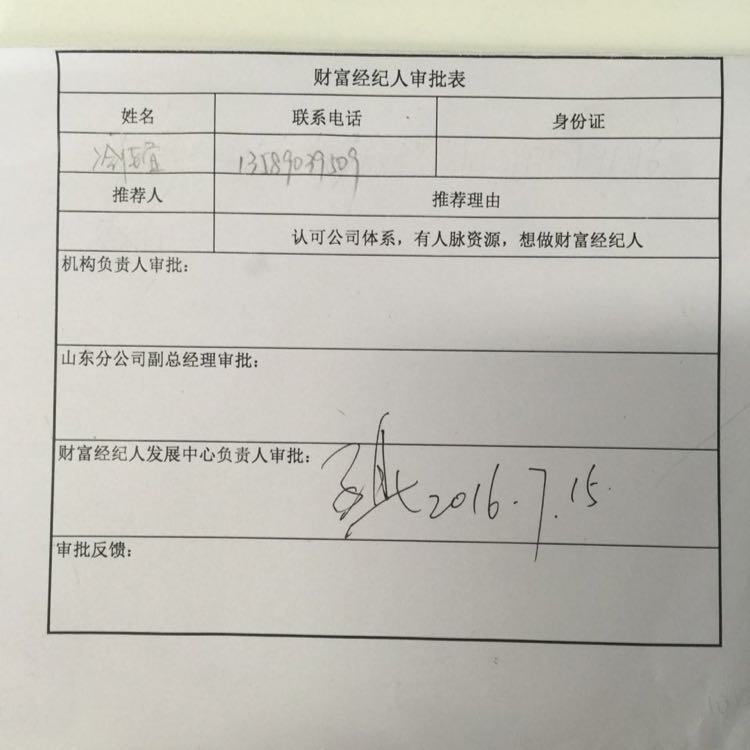 财富经纪人审批表
姓名 联系电话 身份证
13589039509
推荐人 推荐理由
认可公司体系，有人脉资源，想做财富经纪人
机构负责人审批：
山东分公司副总经理审批：
财富经纪人发展中心负责人审批：
2016.7.15.
审批反馈：